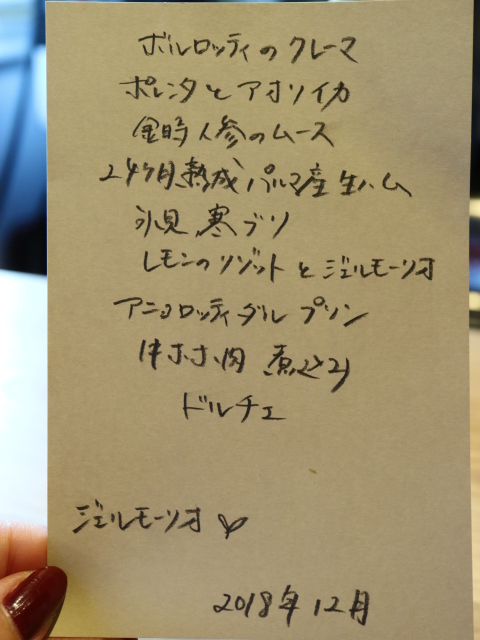 ボルロッティのクレーマ
ポレンタとアオリイカ
金時人参のムース
24ヶ月熟成パルマ産生ハム
氷見寒ブリ
レモンのリゾットとジェルモーリオ
アニョロッティダルプリン
牛ホホ肉 煮込み
ドルチェ
ジェルモーリオ
2018年12月